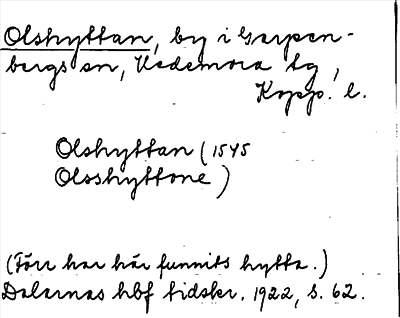 Olshyttan, by i Garpen-
bergs sn, Hedemora tg,
Kopp. l.
Olshyttan (1545
Olsshyttone)
(Förr har här funnits hytta.)
Dalarnas hbf tidskr. 1922, s. 62.